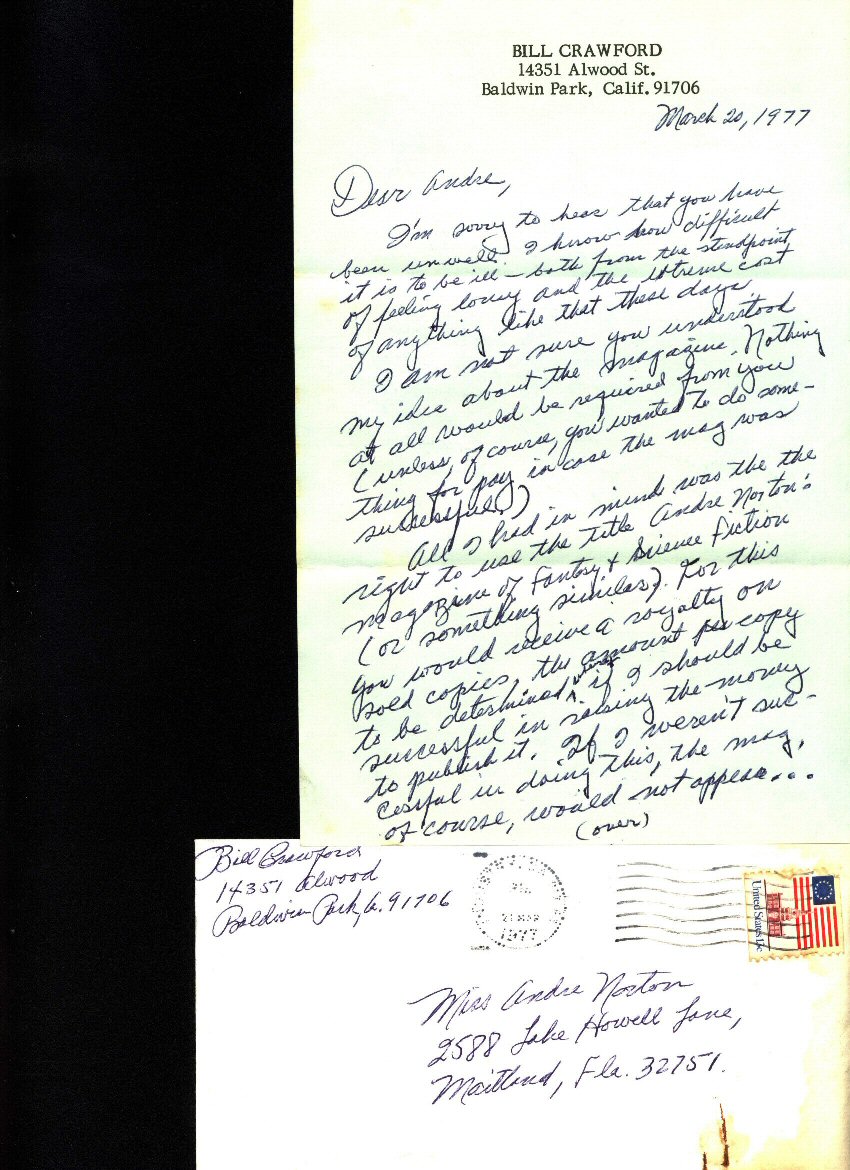 BILL CRAWFORD
14351 Alwood St.
Baldwin Park, Calif. 91706
March 20, 1977
Dear Andre,
I'm sorry to hear that you have
been unwell. I know how difficult
it is to be ill — both from the standpoint
of feeling lousy and the extreme cost
of anything like that these days.
I am not sure you understood
my idea about the magazine. Nothing
at all would be required from you
(unless, of course, you wanted to do some-
thing for pay in case the mag was
successful.)
All I had in mind was the the
right to use the title Andre Norton's
magazine of Fantasy & Science Fiction
(or something similar). For this
you would receive a royalty on
sold copies, the amount per copy
to be determined if I should be
successful in raising the money
to publish it. If I weren't suc-
cessful in doing this, the mag,
of course, would not appear...
(over)
Bill Crawford
14351 Alwood
Baldwin Park, Ca. 91706
PM
21 MAR
1977
United States 13c
Miss Andre Norton
2588 Lake Howell Lane,
Maitland, Fla. 32751.